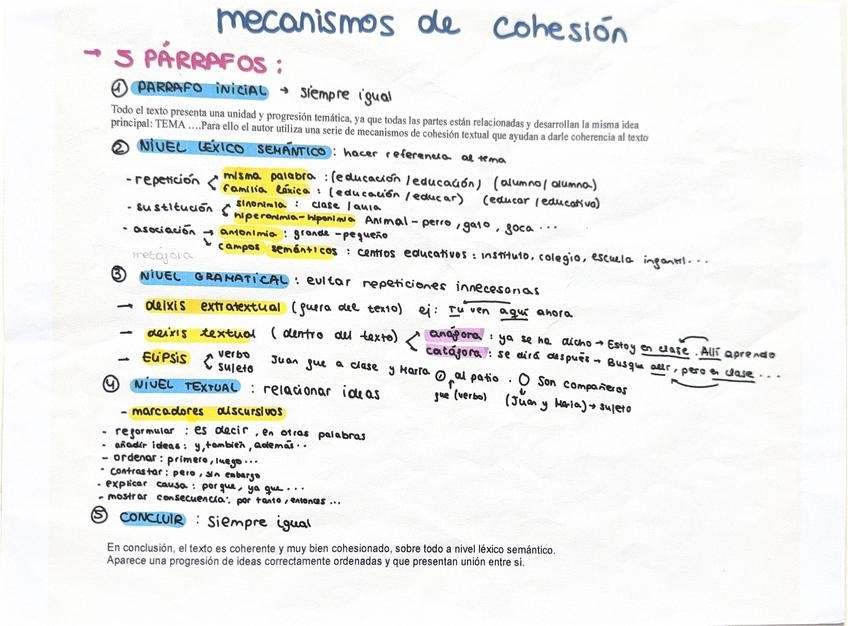 mecanismos de cohesión
→ 5 PÁRRAFOS :
① PARRAFO INICIAL → siempre igual
Todo el texto presenta una unidad y progresión temática, ya que todas las partes están relacionadas y desarrollan la misma idea
principal: TEMA ….Para ello el autor utiliza una serie de mecanismos de cohesión textual que ayudan a darle coherencia al texto
② NIVEL LÉXICO SEMÁNTICO : hacer referencia al tema
- repetición < misma palabra : (educación /educación) (alumno/ alumna)
familia léxica : (educación /educar) (educar /educativo)
- sustitución < sinonimia : clase /aula
hiperonimia-hiponimia Animal - perro, gato, foca ...
- asociación → antonimia : grande - pequeño
↘ campos semánticos : centros educativos : instituto, colegio, escuela infantil...
metáfora
③ NIVEL GRAMATICAL : evitar repeticiones innecesarias
→ deixis extratextual (fuera del texto) ej: Tu ven aquí ahora
→ deixis textual (dentro del texto) < anáfora : ya se ha dicho → Estoy en clase. Allí aprendo
catáfora : se dirá después → Busque allí, pero en clase ...
→ Elipsis < verbo
sujeto
Juan fue a clase y María ∅ al patio. ∅ Son compañeros
fue (verbo) (Juan y María) → sujeto
④ NIVEL TEXTUAL : relacionar ideas
- marcadores discursivos
- reformular : es decir, en otras palabras
- añadir ideas : y, también, además...
- ordenar : primero, luego ...
- contrastar : pero, sin enbargo
- explicar causa : porque, ya que ...
- mostrar consecuencia : por tanto, entonces ...
⑤ CONCLUIR : siempre igual
En conclusión, el texto es coherente y muy bien cohesionado, sobre todo a nivel léxico semántico.
Aparece una progresión de ideas correctamente ordenadas y que presentan unión entre si.